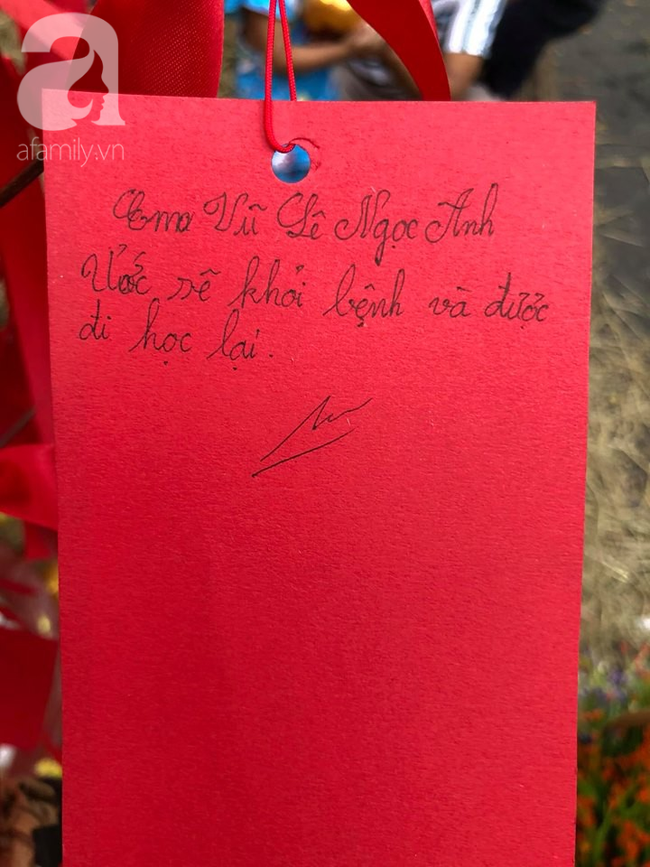 a
afamily.vn
Em Vũ Lê Ngọc Anh
Ước sẽ khỏi bệnh và được
đi học lại.